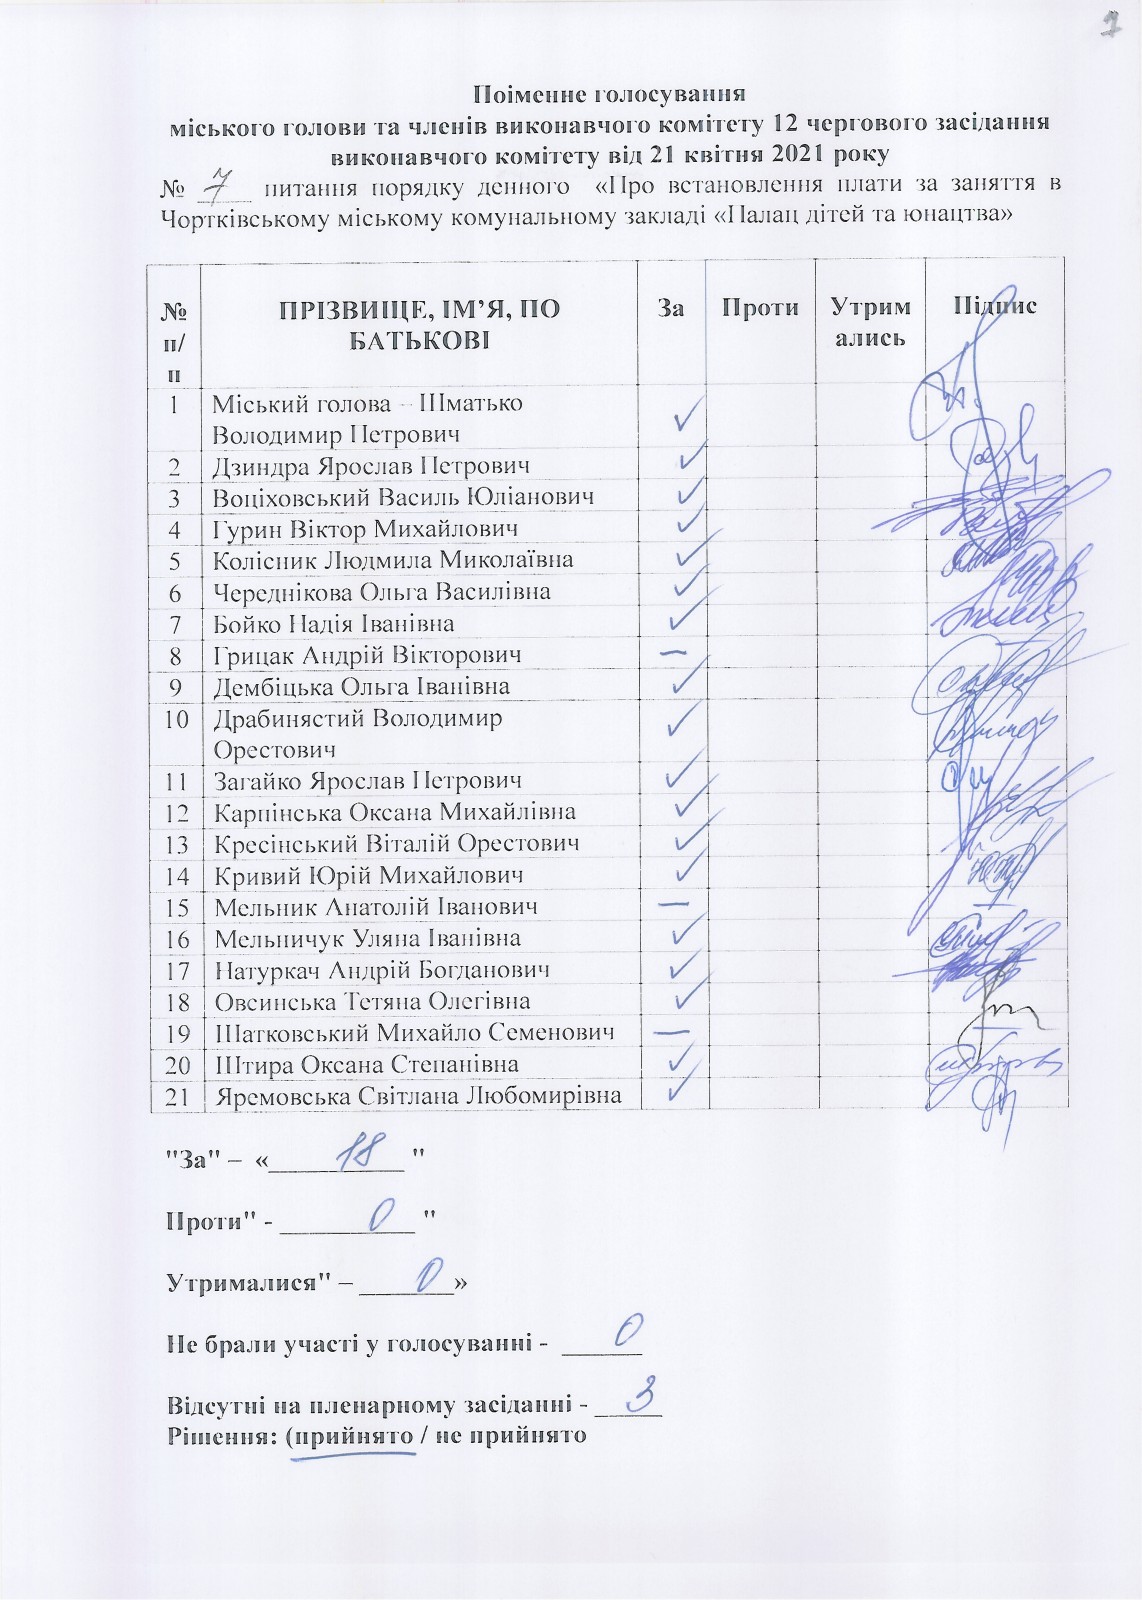 7
Поіменне голосування
міського голови та членів виконавчого комітету 12 чергового засідання
виконавчого комітету від 21 квітня 2021 року
№ 7 питання порядку денного «Про встановлення плати за заняття в
Чортківському міському комунальному закладі «Палац дітей та юнацтва»
№ п/п ПРІЗВИЩЕ, ІМ’Я, ПО БАТЬКОВІ За Проти Утримались Підпис
1 Міський голова – Шматько
Володимир Петрович ✓
2 Дзиндра Ярослав Петрович ✓
3 Воціховський Василь Юліанович ✓
4 Гурин Віктор Михайлович ✓
5 Колісник Людмила Миколаївна ✓
6 Череднікова Ольга Василівна ✓
7 Бойко Надія Іванівна ✓
8 Грицак Андрій Вікторович –
9 Дембіцька Ольга Іванівна ✓
10 Драбинястий Володимир
Орестович ✓
11 Загайко Ярослав Петрович ✓
12 Карпінська Оксана Михайлівна ✓
13 Кресінський Віталій Орестович ✓
14 Кривий Юрій Михайлович ✓
15 Мельник Анатолій Іванович – –
16 Мельничук Уляна Іванівна ✓
17 Натуркач Андрій Богданович ✓
18 Овсинська Тетяна Олегівна ✓
19 Шатковський Михайло Семенович – –
20 Штира Оксана Степанівна ✓
21 Яремовська Світлана Любомирівна ✓
"За" – « 18 "
Проти" - 0 "
Утрималися" – 0 »
Не брали участі у голосуванні - 0
Відсутні на пленарному засіданні - 3
Рішення: (прийнято / не прийнято